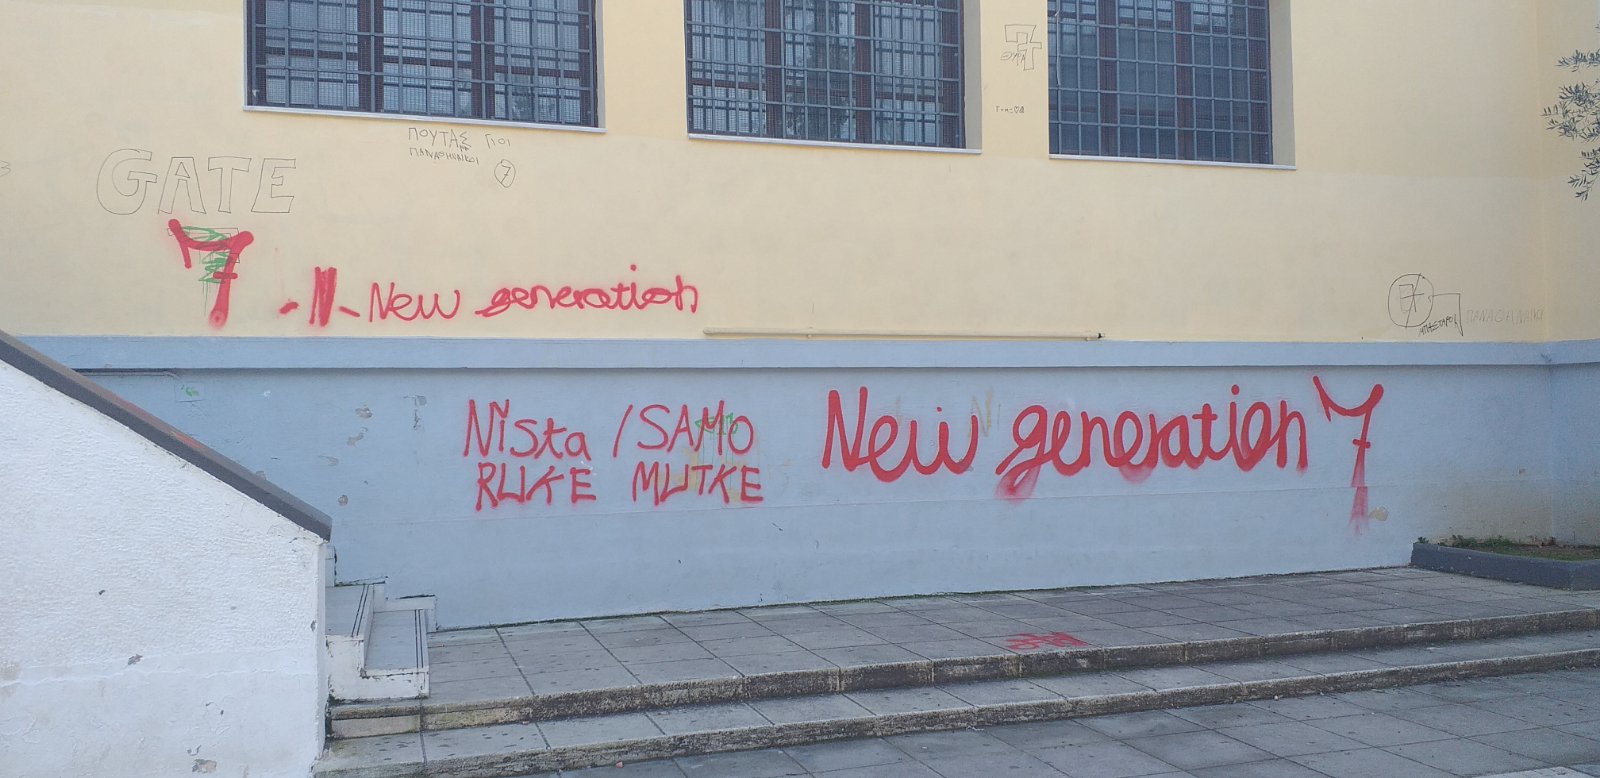 ΘΥΡΑ
7
ΠΟΥΤΑΣ ΓΙΟΙ
ΠΑΝΑΘΗΝΑΙΚΟΙ
7
GATE
7 - N - New generation
7
ΠΑΝΑΘΗΝΑΙΚΟΙ
Nista / SAMO
RUKE MUTKE
New generation 7